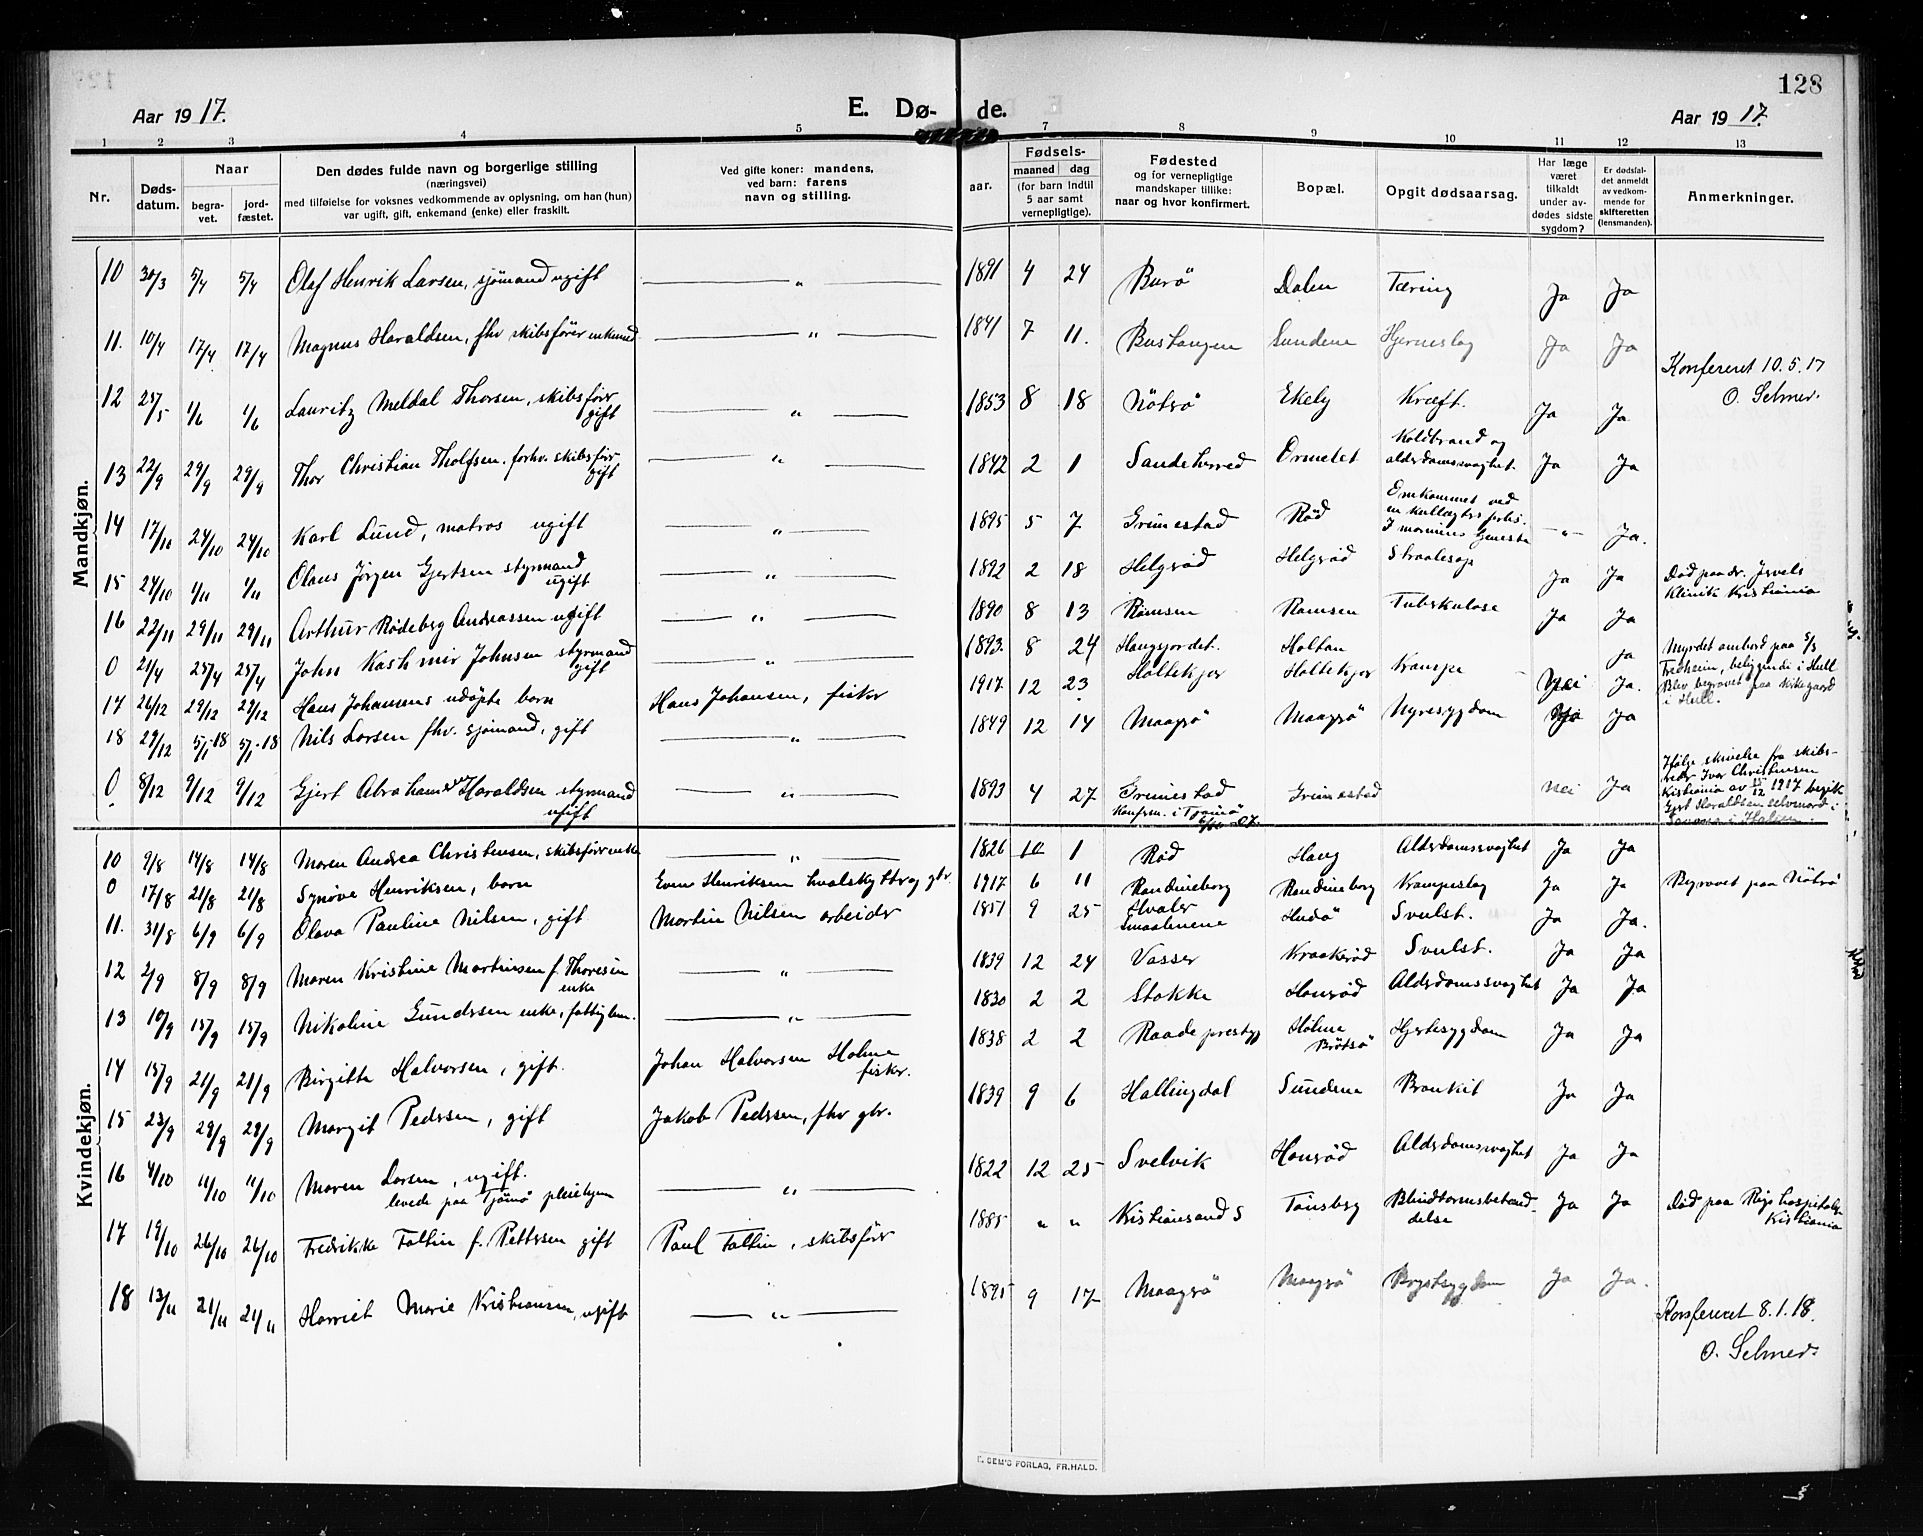 128
Aar 1917.
E. Dø-
de.
Aar 1917.
1 2 3 4 5 7 8 9 10 11 12 13
Nr.
Døds-
datum.
Naar
begra-
vet.
jord-
fæstet.
Den dødes fulde navn og borgerlige stilling
(næringsvei)
med tilføielse for voksnes vedkommende av oplysning, om han (hun)
var ugift, gift, enkemand (enke) eller fraskilt.
Ved gifte koner: mandens,
ved barn: farens
navn og stilling.
aar.
Fødsels-
maaned dag
(for barn indtil
5 aar samt
vernepligtige).
Fødested
og for vernepligtige
mandskaper tillike:
naar og hvor konfirmert.
Bopæl.
Opgit dødsaarsag.
Har læge
været
tilkaldt
under av-
dødes sidste
sygdom?
Er dødsfal-
det anmeldt
av vedkom-
mende for
skifteretten
(lensmanden).
Anmerkninger.
Mandkjøn.
10 30/3 5/4 5/4 Olaf Henrik Larsen, sjömand ugift — „ — 1891 4 24 Burö Dalen Tæring Ja Ja
11. 10/4 17/4 17/4 Magnus Haraldsen, fhv skibsfører enkemd — „ — 1841 7 11. Bustangen Sundene Hjerneslag Ja Ja
Konfereret 10.5.17
O. Selmer.
12 25/5 1/6 1/6 Lauritz Meldal Thorsen, skibsfør
gift — „ — 1853 8 18 Nötrö Ekely Kræft. Ja Ja
13 22/9 29/9 29/9 Thor Christian Tholfsen. forhv. skibsfør
gift — „ — 1842 2 1 Sandeherred Ormelet Koldbrand og
alderdomssvaghet. Ja Ja
14 17/10 24/10 24/10 Karl Lund, matros ugift — „ — 1895 5 7 Grimestad Röd Omkommet ved
- „ - Ja.
15 24/10 1/11 1/11 Olaus Jörgen Gjertsen styrmand
ugift — „ — 1892 2 18 Helgeröd Helgeröd Ja Ja Död paa dr.
Klinik Kristiania
16 22/11 29/11 29/11 Arthur Rödeberg Andreassen ugift — „ — 1890 8 13 Ramsen Ramsen Tuberkulose Ja Ja
0 21/4 25/4 25/4 John Kashmir Johnsen styrmand
gift — „ — 1893. 8 24 Haugjordet. Holtan Ja Myrdet ombord paa S/S
Fredheim, beliggende i Hull
Blev begravet paa kirkegaard
i Hull.
17 26/12 29/12 29/12 Hans Johansens udöpte barn Hans Johansen, fisker 1917 12 23 Holtekjær Holtekjær Krampe Nei Ja.
18 29/12 5/1-18 5/1-18 Nils Larsen fhv. sjömand, gift — „ — 1849 12 14 Maagerö Maagerö Nyresygdom Ja Ja
0 8/12 9/12 9/12 Gjert Abraham Haraldsen styrmand
ugift — „ — 1893 4 27 Grimestad
Konfirm. i Tjömö
Grimestad nei Ja Ifölge skrivelse fra skibs-
reder Ivar Christensen
Kristiania av 15/12 1917 begik
Gjert Haraldsen selvmord i
Kvindekjøn.
10 9/8 14/8 14/8 Maren Andrea Christensen, skibsförerenke — „ — 1826 10 1 Röd Haug Alderdomssvaghet Ja Ja
0 17/8 21/8 21/8 Synöve Henriksen, barn Even Henriksen hvalskytter og gbr. 1917 6 11 Randineborg Randineborg Krampeslag Ja Ja Begravet paa Nötrö
11. 31/8 6/9 6/9 Olava Pauline Nilsen, gift Martin Nilsen arbeider 1851 9 25 Hvaler
Smaalenene Hudö Svulst. Ja Ja.
12 2/9 8/9 8/9 Maren Kristine Martinsen f. Thoresen
enke — „ — 1839 12 24 Vasser Kraakeröd Svulst. Ja Ja
13 10/9 15/9 15/9 Nikoline Gundersen enke, fattiglem. — „ — 1830 2 2 Stokke Honeröd Alderdomssvaghet Ja Ja
14 15/9 21/9 21/9 Birgitte Halvorsen, gift. Johan Halvorsen Holme
fisker. 1838 2 2 Raade prestegj Holme
Brötsö Hjertesygdom Ja Ja
15 23/9 29/9 29/9 Margit Pedersen, gift Jakob Pedersen, fhv gbr. 1839 9 6 Hallingdal Sundene Bronkit Ja Ja
16 4/10 11/10 11/10 Maren Larsen, ugift.
levede paa Tjömö pleiehjem — „ — 1822 12 25 Svelvik Honeröd Alderdomssvaghet Ja Ja
17 19/10 26/10 26/10 Fredrikke Faltin f. Pettersen gift Paul Faltin, skibsfører 1885 „ „ Kristiansand S Tönsberg Blindtarmsbetænd-
delse Ja Ja Död paa Rigshospitalet
Kristiania
18 13/11 21/11 21/11 Harriet Marie Kristiansen, ugift — „ — 1895 9 17 Maagerö Maagerö Brystsygdom Ja Ja.
Konfereret 8.1.18.
O. Selmer.
E. SEM'S FORLAG, FR.HALD.